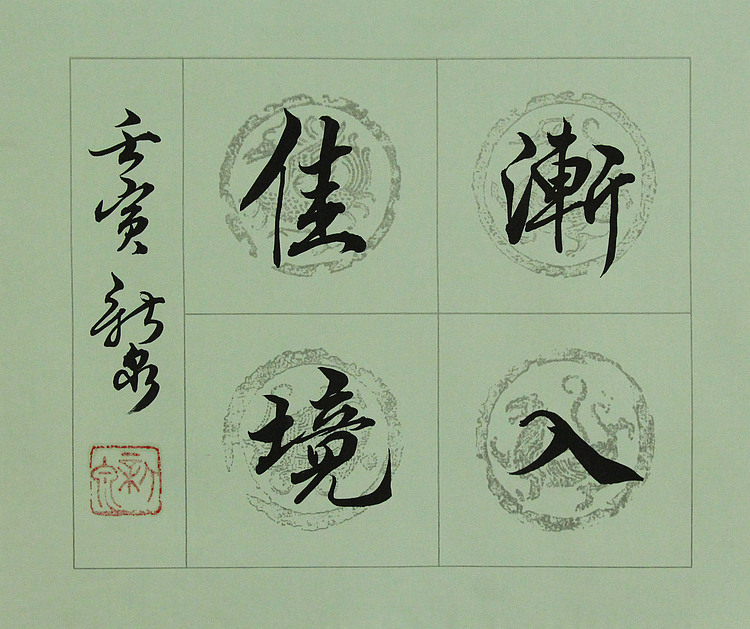 漸入
佳境
壬寅 新泉